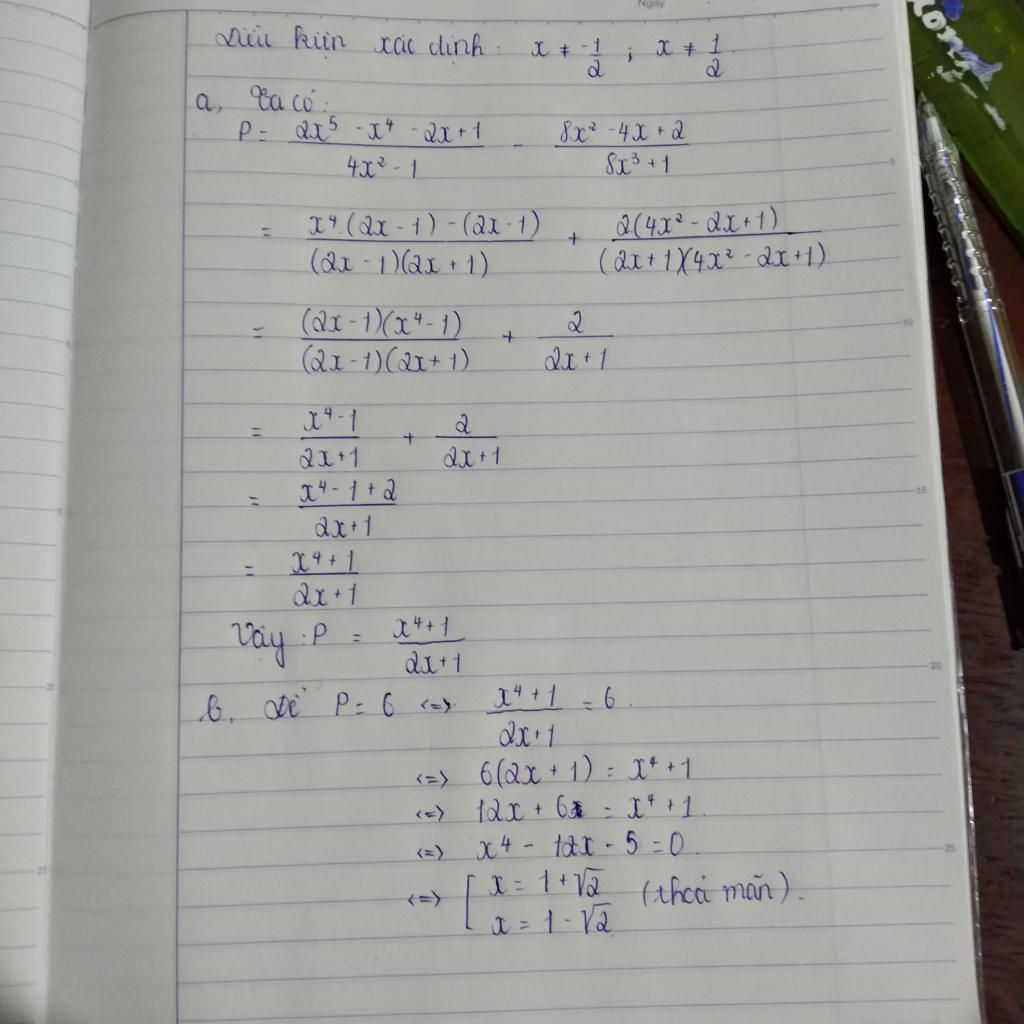 Ngày
Điều kiện xác định: x ≠ -1/2 ; x ≠ 1/2.
a, Ta có:
P = (2x⁵ - x⁴ - 2x + 1)/(4x² - 1) - (8x² - 4x + 2)/(8x³ + 1)
= (x⁴.(2x - 1) - (2x - 1))/((2x - 1)(2x + 1)) + (2(4x² - 2x + 1))/((2x + 1)(4x² - 2x + 1))
= ((2x - 1)(x⁴ - 1))/((2x - 1)(2x + 1)) + 2/(2x + 1)
= (x⁴ - 1)/(2x + 1) + 2/(2x + 1)
= (x⁴ - 1 + 2)/(2x + 1)
= (x⁴ + 1)/(2x + 1)
Vậy : P = (x⁴ + 1)/(2x + 1)
b. Để P = 6 <=> (x⁴ + 1)/(2x + 1) = 6.
<=> 6(2x + 1) = x⁴ + 1
<=> 12x + 6 = x⁴ + 1.
<=> x⁴ - 12x - 5 = 0.
<=> [ x = 1 + √2 (thoả mãn).
x = 1 - √2